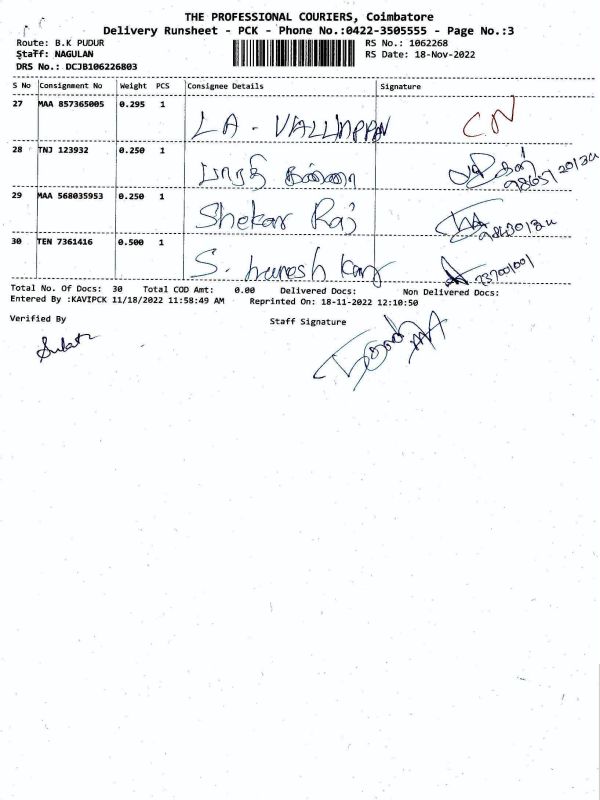 THE PROFESSIONAL COURIERS, Coimbatore
Delivery Runsheet - PCK - Phone No.:0422-3505555 - Page No.:3
Route: B.K PUDUR RS No.: 1062268
Staff: NAGULAN RS Date: 18-Nov-2022
DRS No.: DCJB106226803
S No Consignment No Weight PCS Consignee Details Signature
27 MAA 857365005 0.295 1
LA - VALLIAPPAN CN
28 TNJ 123932 0.250 1
பாரதி
29 MAA 568035953 0.250 1
Shekar Raj
30 TEN 7361416 0.500 1
S.
Total No. Of Docs: 30 Total COD Amt: 0.00 Delivered Docs: Non Delivered Docs:
Entered By :KAVIPCK 11/18/2022 11:58:49 AM Reprinted On: 18-11-2022 12:10:50
Verified By Staff Signature